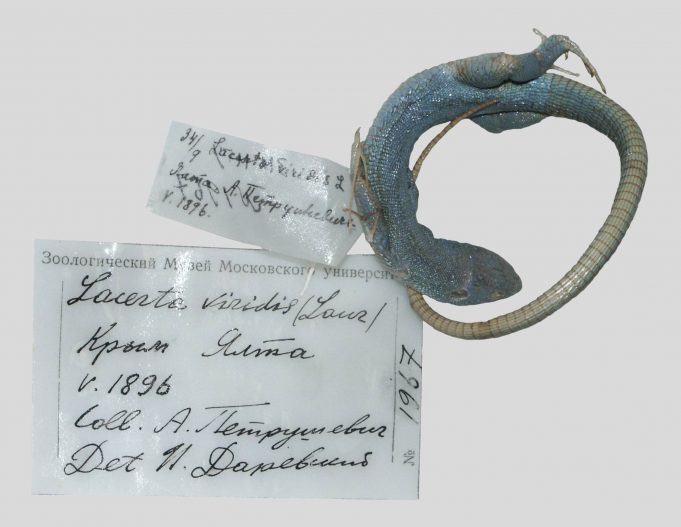 34/9 Lacerta viridis L
Ялта А. Петрушевич
V. 1896.
Зоологический Музей Московского университ
Lacerta viridis (Laur)
Крым Ялта
V. 1896
Coll. А. Петрушевич
Det И. Даревский
№ 1967